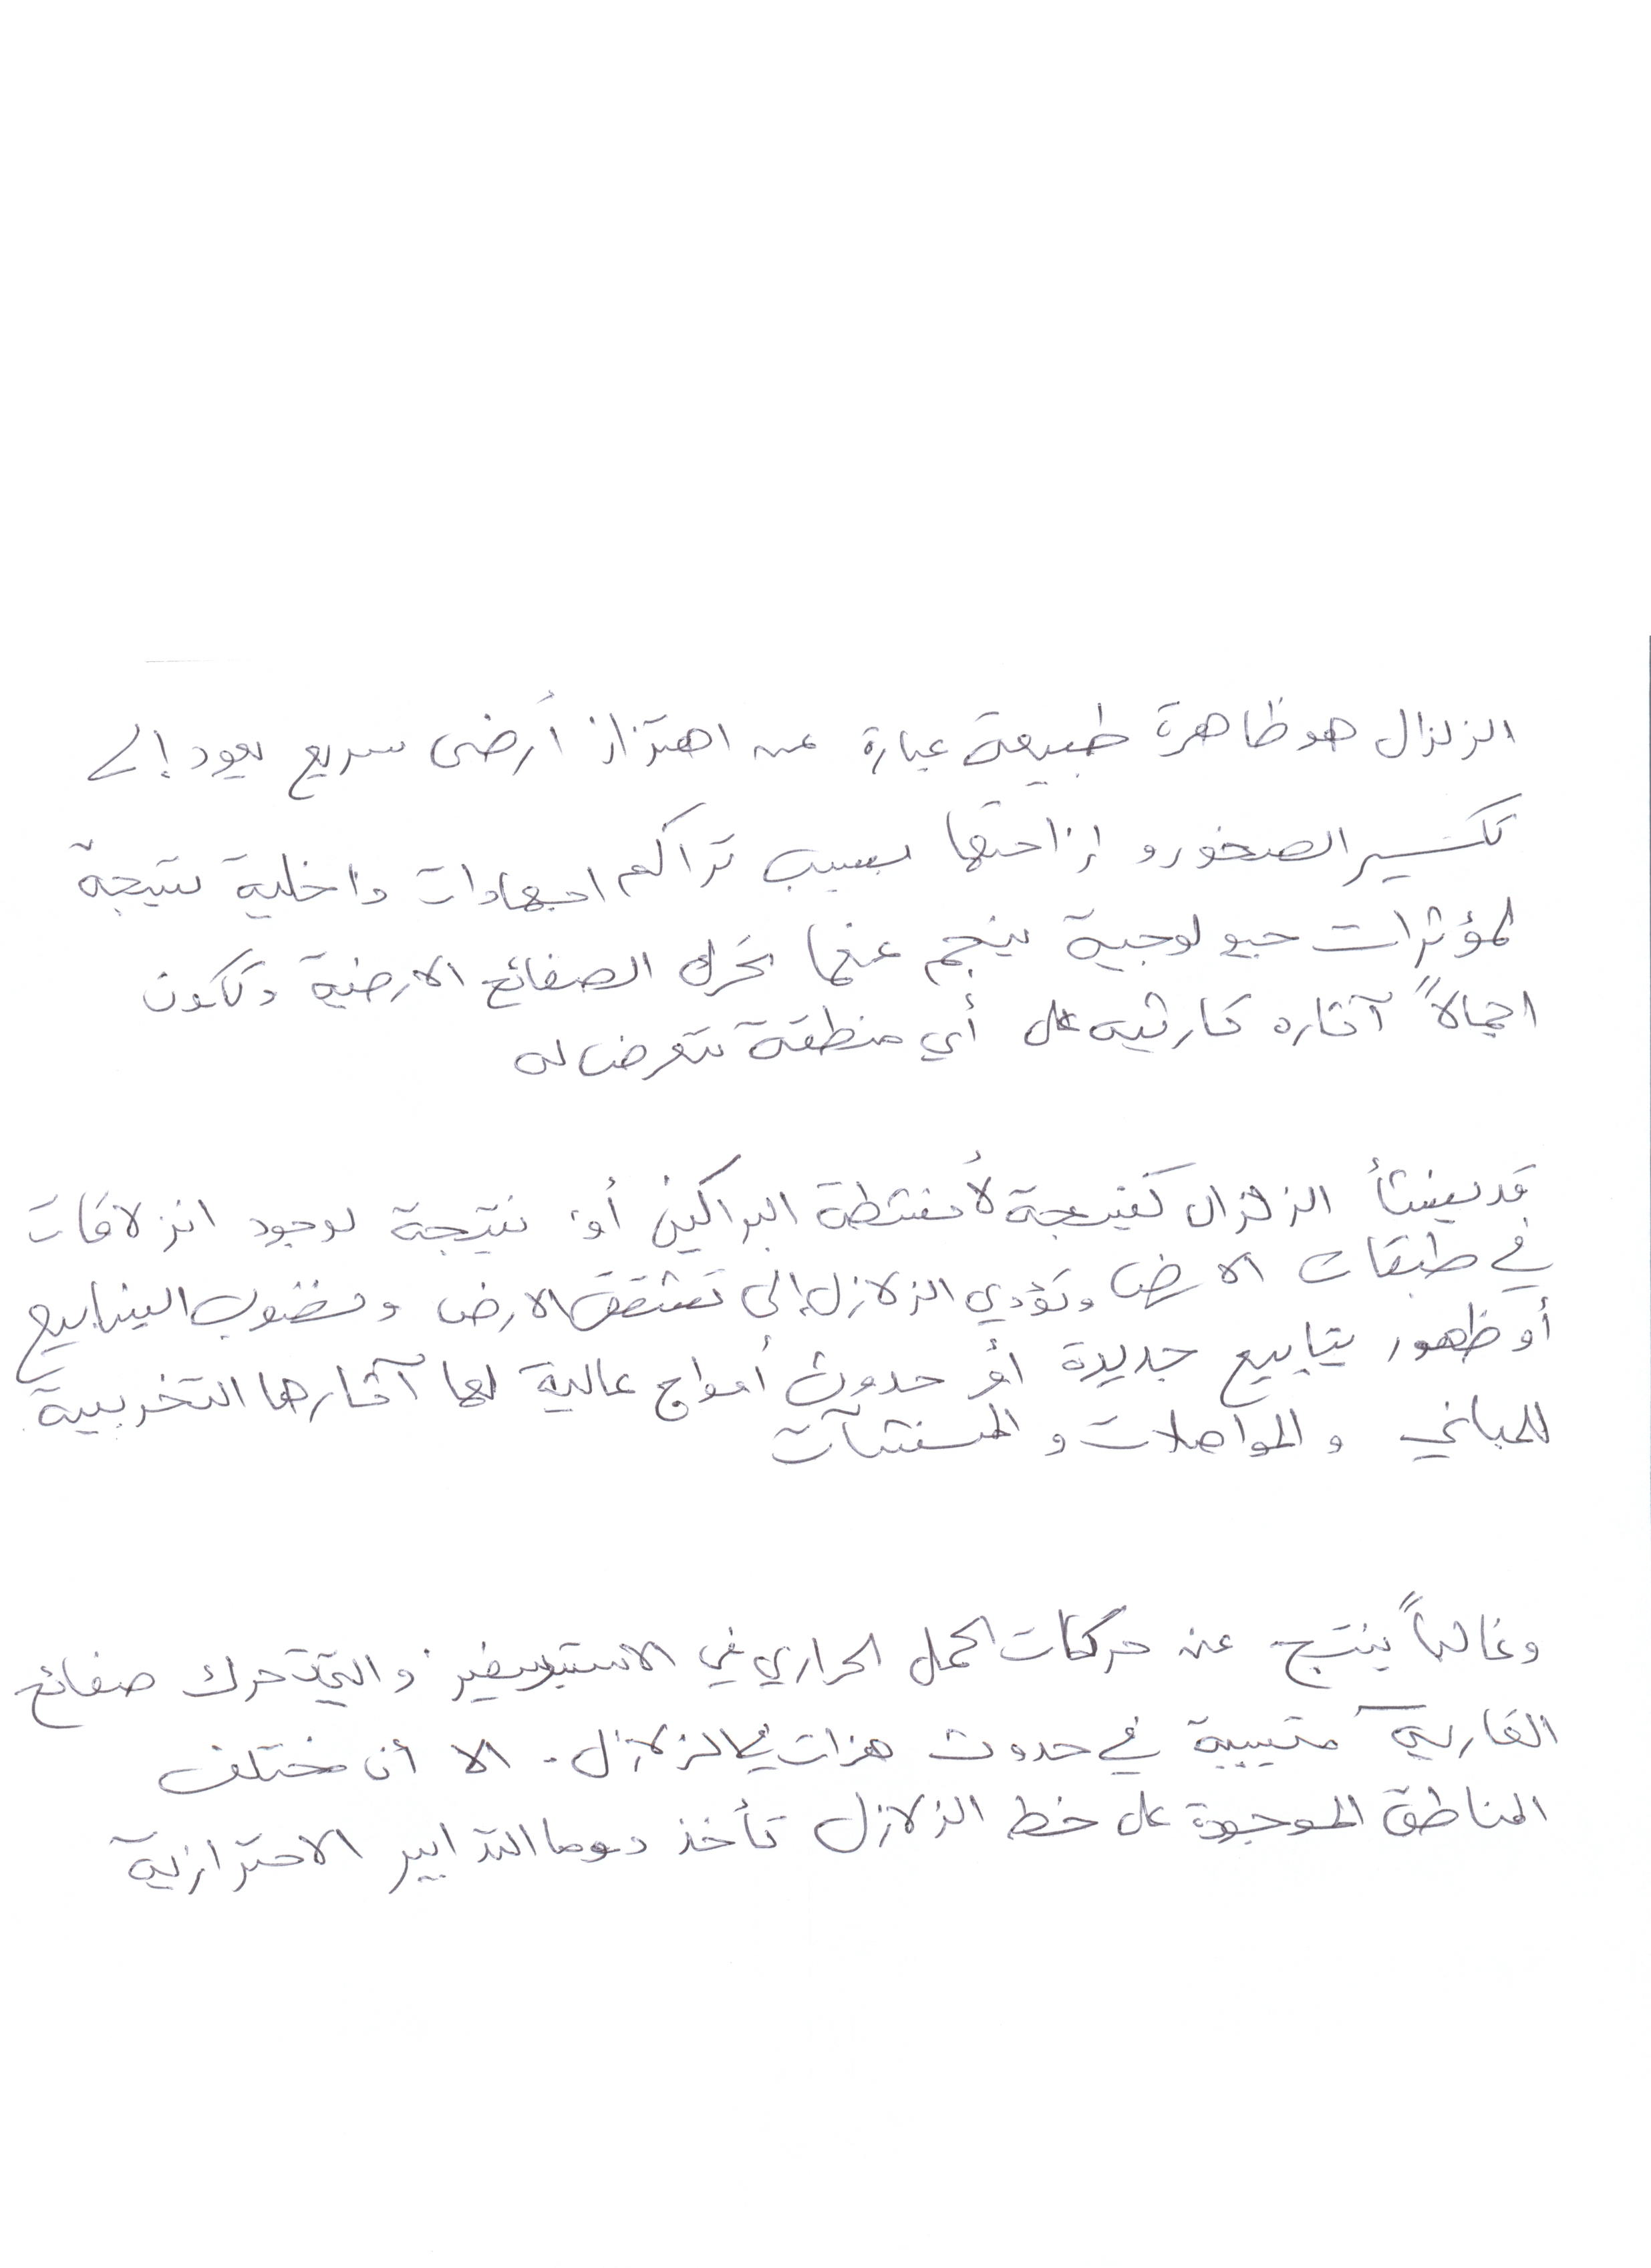 الزلزال هو ظاهرة طبيعية عبارة عن اهتزاز أرضى سريع يعود إلى
تكسير الصخور و إزاحتها بسبب تراكم اجهادات داخلية نتيجة
لمؤثرات جيولوجية ينجم عنها تحرك الصفائح الارضية وتكون
اجمالاً آثاره كارثيه على أي منطقة تتعرض له
قد ينشأ الزلزال كنتيجة لأنشطة البراكين أو نتيجة لوجود انزلاقات
في طبقات الارض وتؤدي الزلازل إلى تشقق الارض ونضوب الينابيع
أو ظهور ينابيع جديدة أو حدوث أمواج عالية لها آثارها التخريبية
للمباني والمواصلات و المنشآت
وغالباً ينتج عن حركات الحمل الحراري في الاستينوسفير والتي تحرك صفائح
القارية متسببة في حدوث هزات في الزلازل. الا أن مختلف
المناطق الموجودة على خط الزلازل تأخذ دوما التدابير الاحترازية